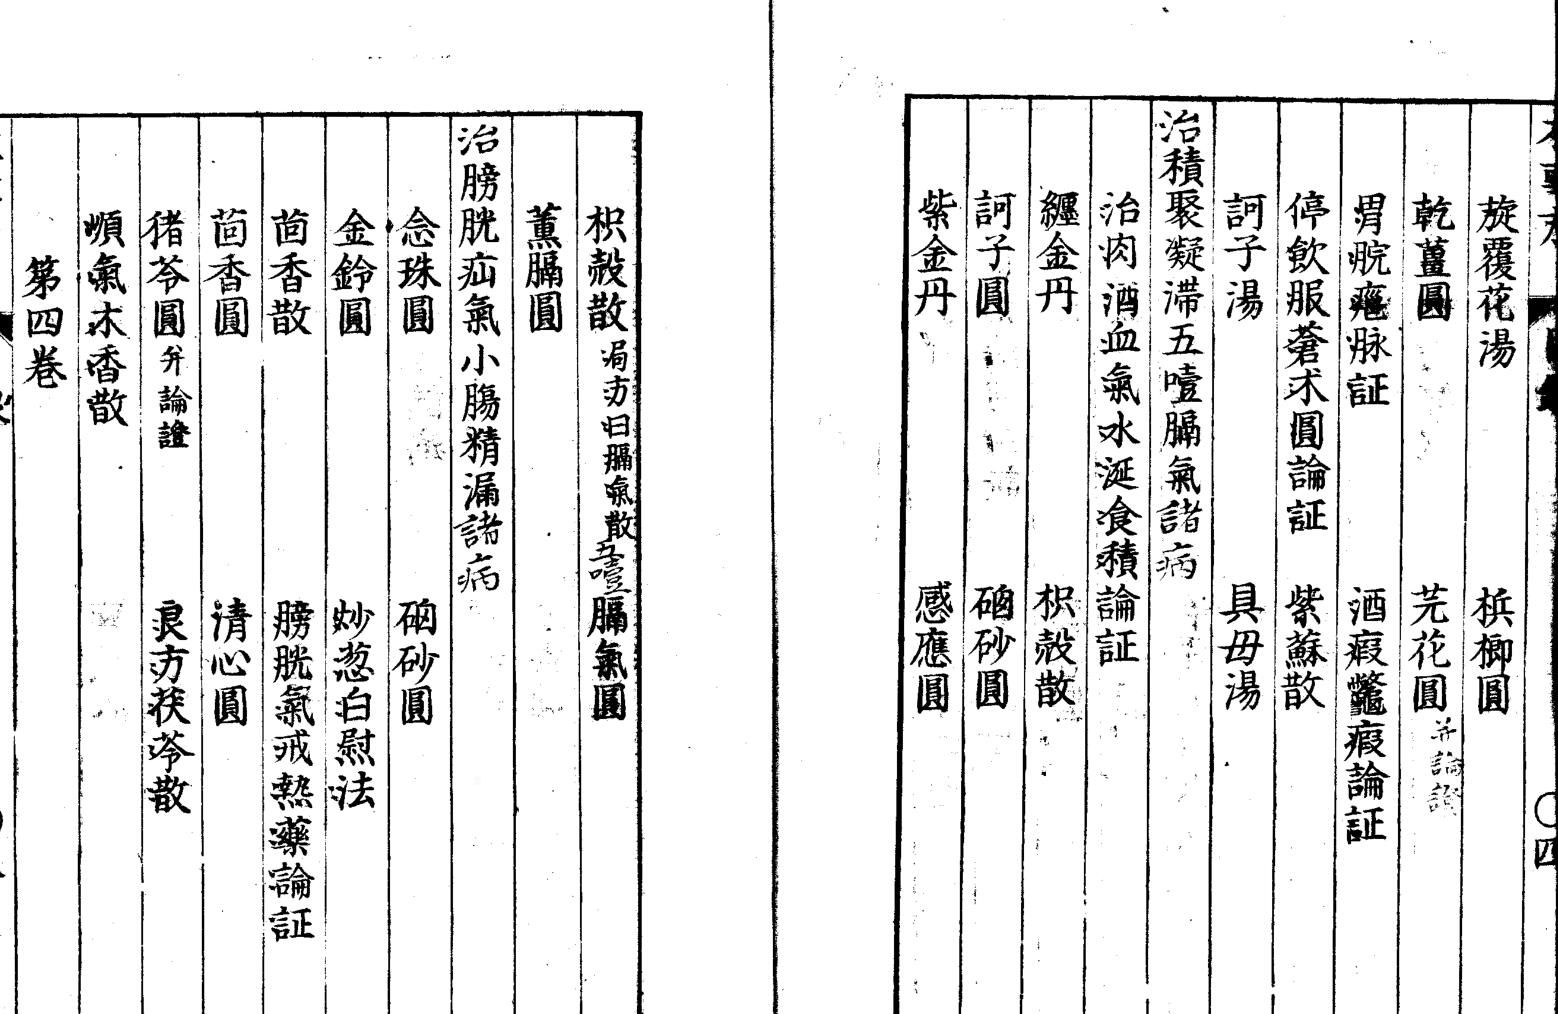 旋覆花湯 梹榔圓
乾薑圓 芫花圓 并論證
胃脘痺脉証 酒瘕鼈瘕論証
停飲服蒼朮圓論証 紫蘇散
訶子湯 具毋湯
治積聚凝滯五噎膈氣諸病
治肉酒血氣水涎食積論証
纏金丹 枳殼散
訶子圓 硇砂圓
紫金丹 感應圓
枳殼散 局方曰膈氣散 五噎膈氣圓
薰膈圓
治膀胱疝氣小腸精漏諸病
念珠圓 硇砂圓
金鈴圓 炒葱白慰法
茴香散 膀胱氣戒熱藥論証
茴香圓 清心圓
猪苓圓 并論證 良方茯苓散
順氣木香散
第四卷